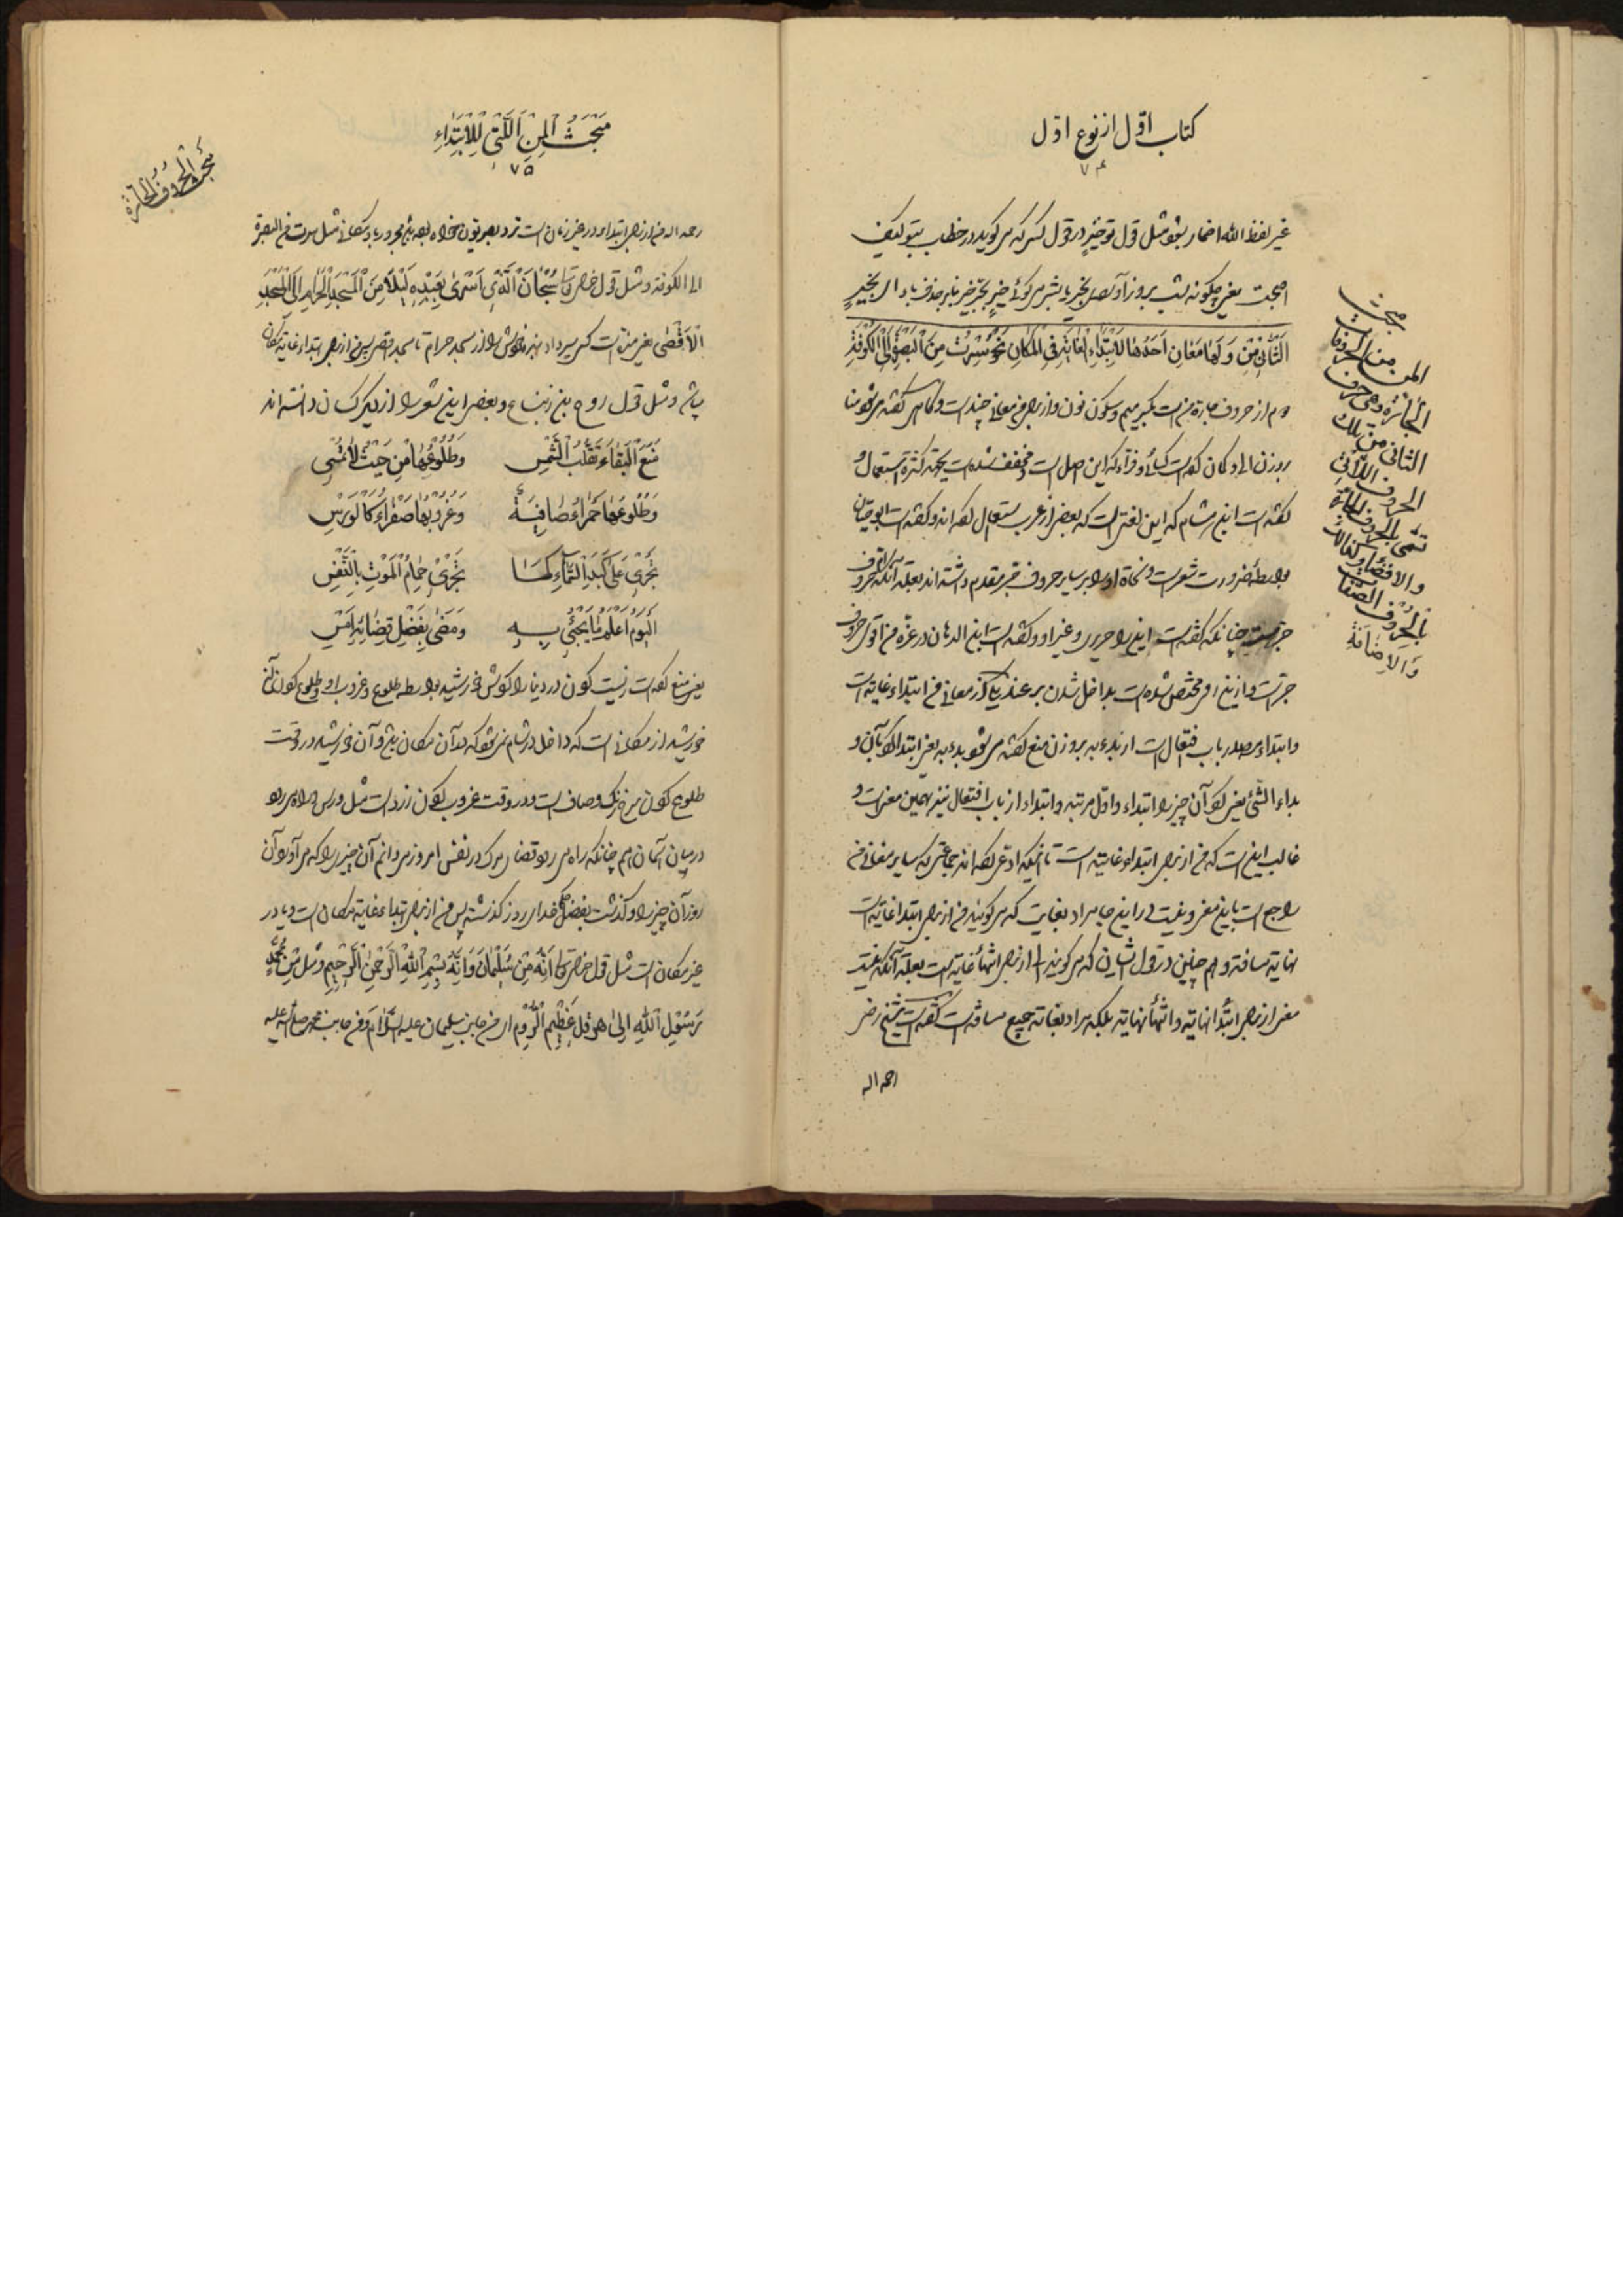 کتاب اوّل از نوع اوّل
۷۴
غیر لفظ الله اضمار بشود مثل قول تو خیرٍ در قول کسی که می گوید در خطاب بتو کیف
اصبحت یعنی چگونه شب بروز آوردی بخیر یا بشر می گوئی خیرٍ بجرّ خیر بنابر حذف باء ای بخیرٍ
الثّانی مِنْ وَ لَها مَعانٍ اَحَدُها لِاِبْتِداءِ الْغایَةِ فِی الْمَکانِ نَحْوُ سِرْتُ مِنَ الْبَصْرَةِ اِلَی الْکُوفَةِ
دوم از حروف جارة من است بکسر میم و سکون نون و از برای من معانی چند است و گاهی گفته می شود منا
بر وزن الی و کان گفته است کسائی و فراء که این اصل است و مخفف شده است بجهة کثرة استعمال و
گفته است ابن هشام که این لغتی است که بعضی از عرب استعمال کرده اند و گفته است ابوحیان
بواسطه ضرورت شعر است و نحاة او را بر سایر حروف جرّ مقدم داشته اند بعلة آنکه اقوی حروف
جرّ است چنانکه گفته است این را حریری و غیر او و گفته است ابن الدهان در غرّه من اقوی حروف
جرّ است و از این رو مختص شده است بداخل شدن بر عند یکی از معانی من ابتداء غایة است
و ابتداء مصدر باب افتعال است از بدء به بر وزن منع گفته می شود بدء به یعنی ابتدا کرد بآن و
بداء الشّئ یعنی کرد آن چیز را ابتداء و اوّل مرتبه و ابتداء از باب افتعال نیز بهمین معنی است و
غالب این است که من از برای ابتداء غایة است تا اینکه ادّعی کرده اند جماعتی که سایر معانی من
راجع است باین معنی و نیست در این جا مراد بغایت که می گویند من از برای ابتداء غایة است
نهایة مسافة و هم چنین در قول ایشان که می گویند الی از برای انتهاء غایة است بعلة آنکه نیست
معنی از برای ابتداء نهایة و انتهاء نهایة بلکه مراد بغایة جمیع مسافة است گفته است شیخ رضی
رحمه اله
مبحث
المن من الحروفات
الجّارّة وهی حرف
الثانی من تلک
الحروف اللّاتی
تسمّی بالحروف الجارّة
بالحُرُوف الصّفات
وَالاِضافَةِ
مَبْحَثُ الْمِنِ اللَّتی لِلْاِبْتِداءِ
۷۵
مبحثُ الحُرُوفُ الجارّة
رحمه اله من از برای ابتداء در غیر زمان است نزد بصریون خواه بوده باشد مجرور باو مکانی مثل سرت من البصرة
الی الکوفة و مثل قول خدای تعالی سُبْحانَ الَّذی اَسْری بِعَبْدِهِ لَیْلاً مِنَ الْمَسْجِدِ الْحَرامِ اِلَی الْمَسْجِدِ
الْاَقْصی یعنی منزه است کسی که سیر داد بنده خویش را از مسجد حرام تا مسجد اقصی پس من از برای ابتداء غایة مکان
باشد و مثل قول روح بن زنباع و بعضی این شعر را از دیگر کسان دانسته اند
مَنَعَ الْبَقاءَ تَقَلُّبُ الشَّمْسِ وَطُلُوعُها مِنْ حَیْثُ لاتُمْسی
وَطُلُوعُها حَمْراءَ صافِیَةً وَغُرُوبُها صَفْراءَ کَالْوَرْسِ
تَجْری عَلی کَبَدِ السَّماءِ کَما یَجْری حِمامُ الْمَوْتِ بِالنَّفْسِ
اَلْیَوْمُ اَعْلَمُ مایَجیُٔ بِهِ وَمَضی بِفَضْلِ قَضائِهِ اَمْسِ
یعنی منع کرده است زیست کردن در دنیا را گردش خورشید بواسطه طلوع و غروب او و طلوع کردن
خورشید از مکانی است که داخل در شام نمی شود که در آن مکان باشد و آن خورشید در وقت
طلوع کردن سرخ رنگ و صاف است و در وقت غروب کردن زرد است مثل ورس و راه می رود
در میان آسمان هم چنانکه راه می رود قضای مرگ در نفس امروز می دانم آن چیزی را که می آورد آن
روز آن چیز را و گذشت بفضل حکم خدای روز گذشته پس من از برای ابتداء غایة مکان است و یا در
غیر مکان است مثل قول خدای تعالی اِنَّهُ مِنْ سُلَیْمانَ وَاِنَّهُ بِسْمِ اللهِ الرَّحْمنِ الرَّحیمِ و مثل مِنْ مُحَمَّدٍ
رَسُولِ اللهِ اِلی هِرَقْلَ عَظیمِ الرُّومِ ای من جانب سلیمان علیه السّلام و من جانب محمد صلّی الله علیه